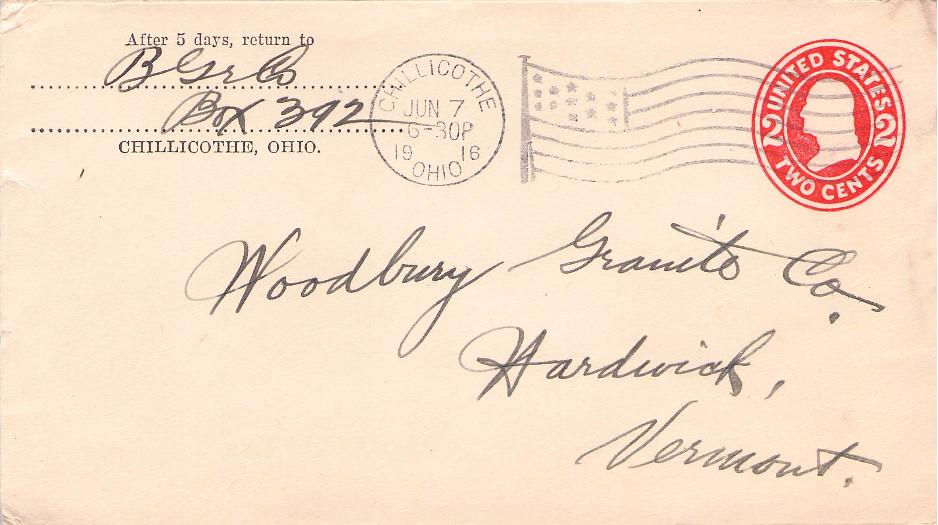 After 5 days, return to
Box 392
CHILLICOTHE, OHIO.
CHILLICOTHE
JUN 7
6-30P
1916
OHIO
UNITED STATES
2 2
TWO CENTS
Woodbury Granite Co.
Hardwick,
Vermont.